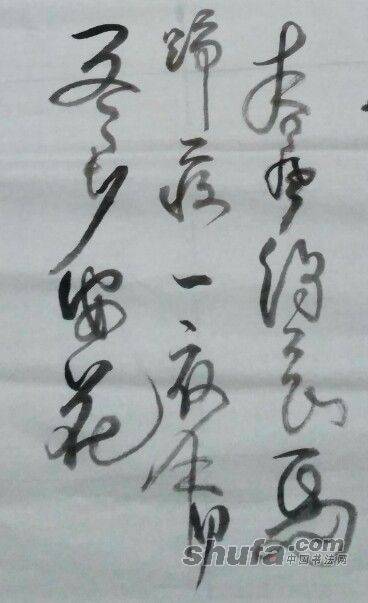 春風得意馬
蹄疾一
尽长安花
shufa.com
中国书法网